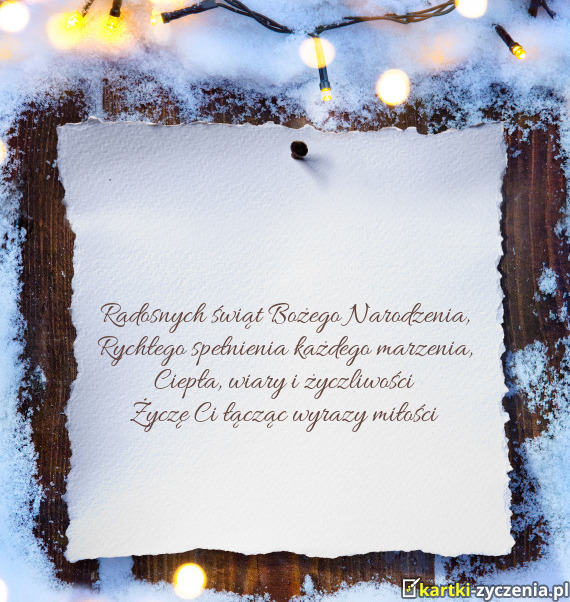 Radosnych świąt Bożego Narodzenia,
Rychłego spełnienia każdego marzenia,
Ciepła, wiary i życzliwości
Życzę Ci łącząc wyrazy miłości
kartki-zyczenia.pl